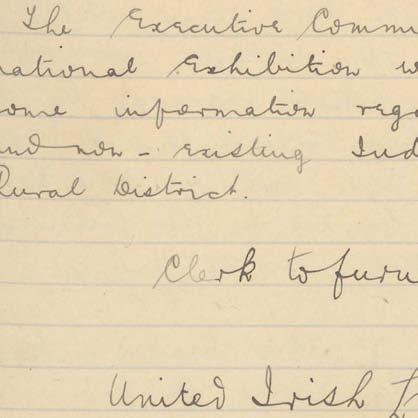 The Executive Commi
national Exhibition w
ome information rega
and non - existing Ind
Rural District.
Clerk to furn
United Irish